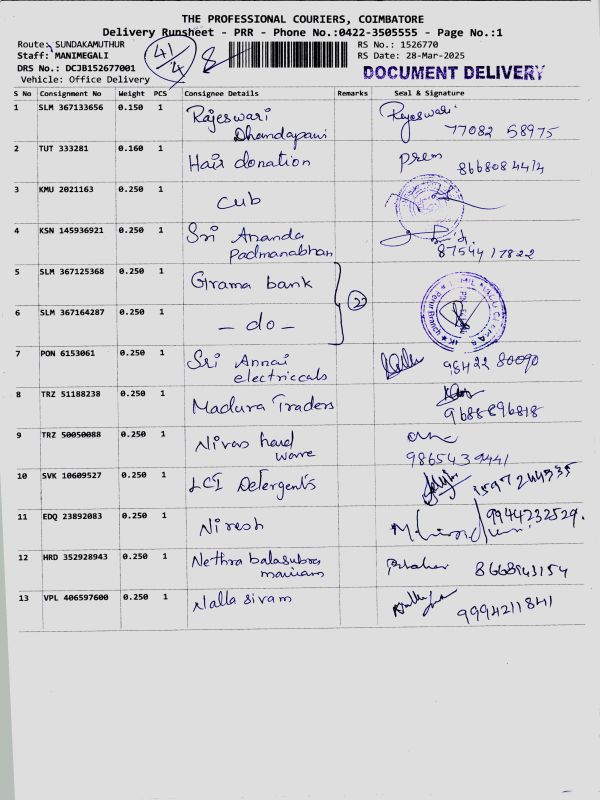 THE PROFESSIONAL COURIERS, COIMBATORE
Delivery Runsheet - PRR - Phone No.:0422-3505555 - Page No.:1
Route: SUNDAKAMUTHUR
Staff: MANIMEGALI
DRS No.: DCJB152677001
Vehicle: Office Delivery
41/4 8
RS No.: 1526770
RS Date: 28-Mar-2025
DOCUMENT DELIVERY
S No Consignment No Weight PCS Consignee Details Remarks Seal & Signature
1 SLM 367133656 0.150 1 Rajeswari Rajeswari
Dhandapani 77082 58975
2 TUT 333281 0.160 1 Hair donation Prem 8668084414
3 KMU 2021163 0.250 1 Cub
4 KSN 145936921 0.250 1 Sri Ananda
Padmanabhan 8754417822
5 SLM 367125368 0.250 1 Grama bank
2
6 SLM 367164287 0.250 1 - do -
7 PON 6153061 0.250 1 Sri Annai
electriccals 95422 80090
8 TRZ 51188238 0.250 1 Madura Traders 9688896818
9 TRZ 50050088 0.250 1 Nivas hard
ware 9865439441
10 SVK 10609527 0.250 1 LCI Detergents 1597264335
11 EDQ 23892083 0.250 1 Niresh 9944232529.
12 HRD 352928943 0.250 1 Nethra balasubra
maniam 8668943154
13 VPL 406597600 0.250 1 Nalla sivam 9994211841